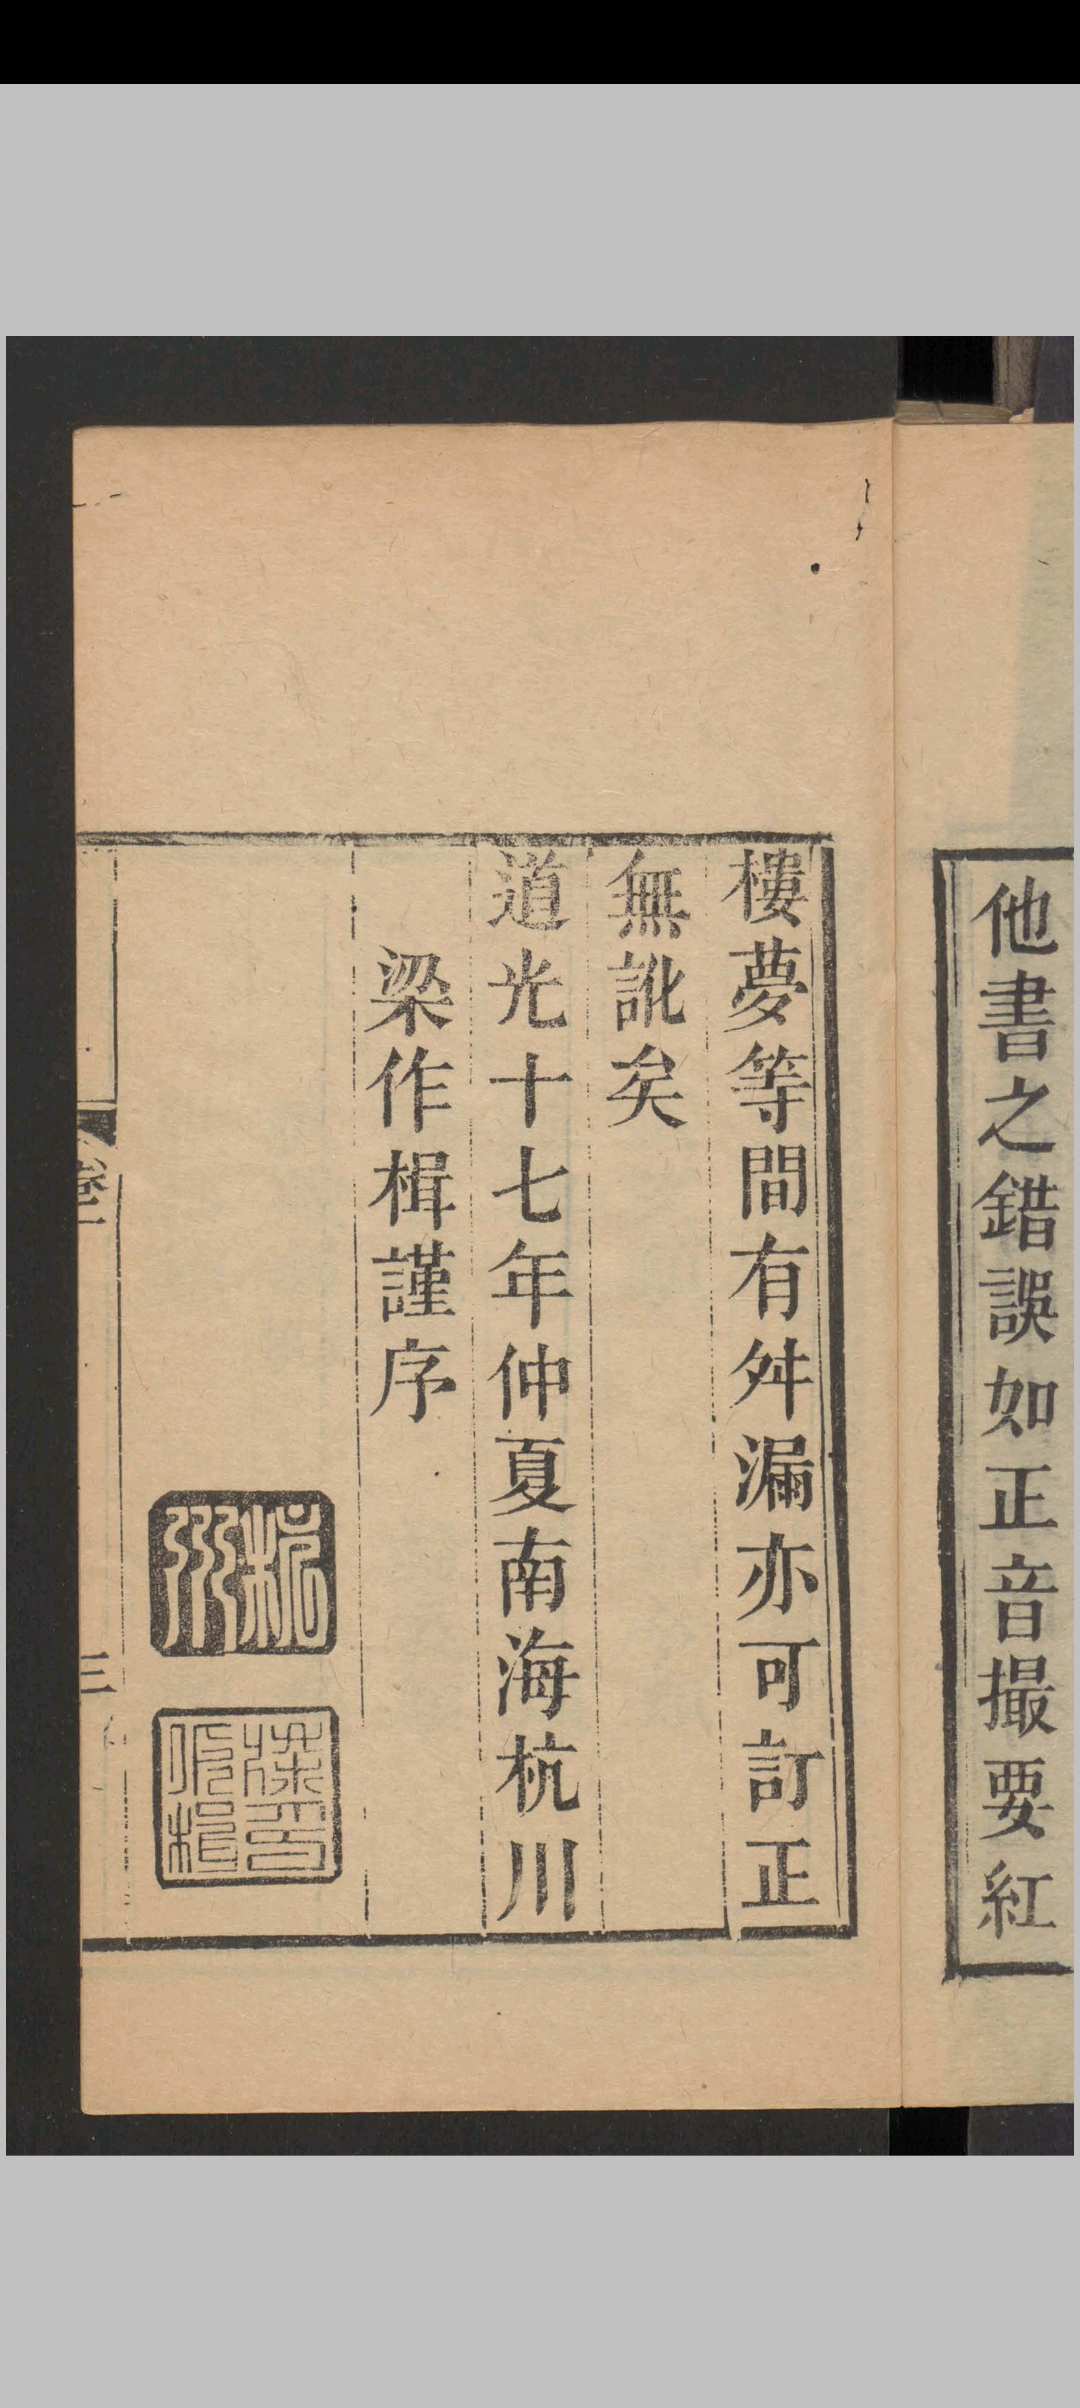 他書之錯誤如正音撮要紅
樓夢等間有舛漏亦可訂正
無訛矣
道光十七年仲夏南海杭川
梁作楫謹序
杭川
梁印作楫
三